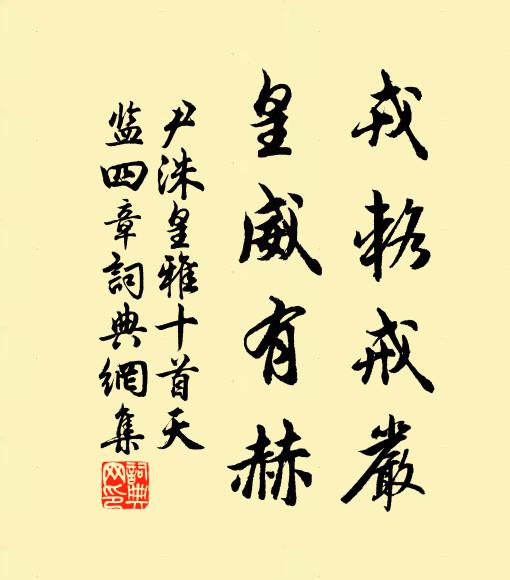 戎輅戒嚴
皇威有赫
尹洙皇雅十首天
監四章詞典網集
詞典網印